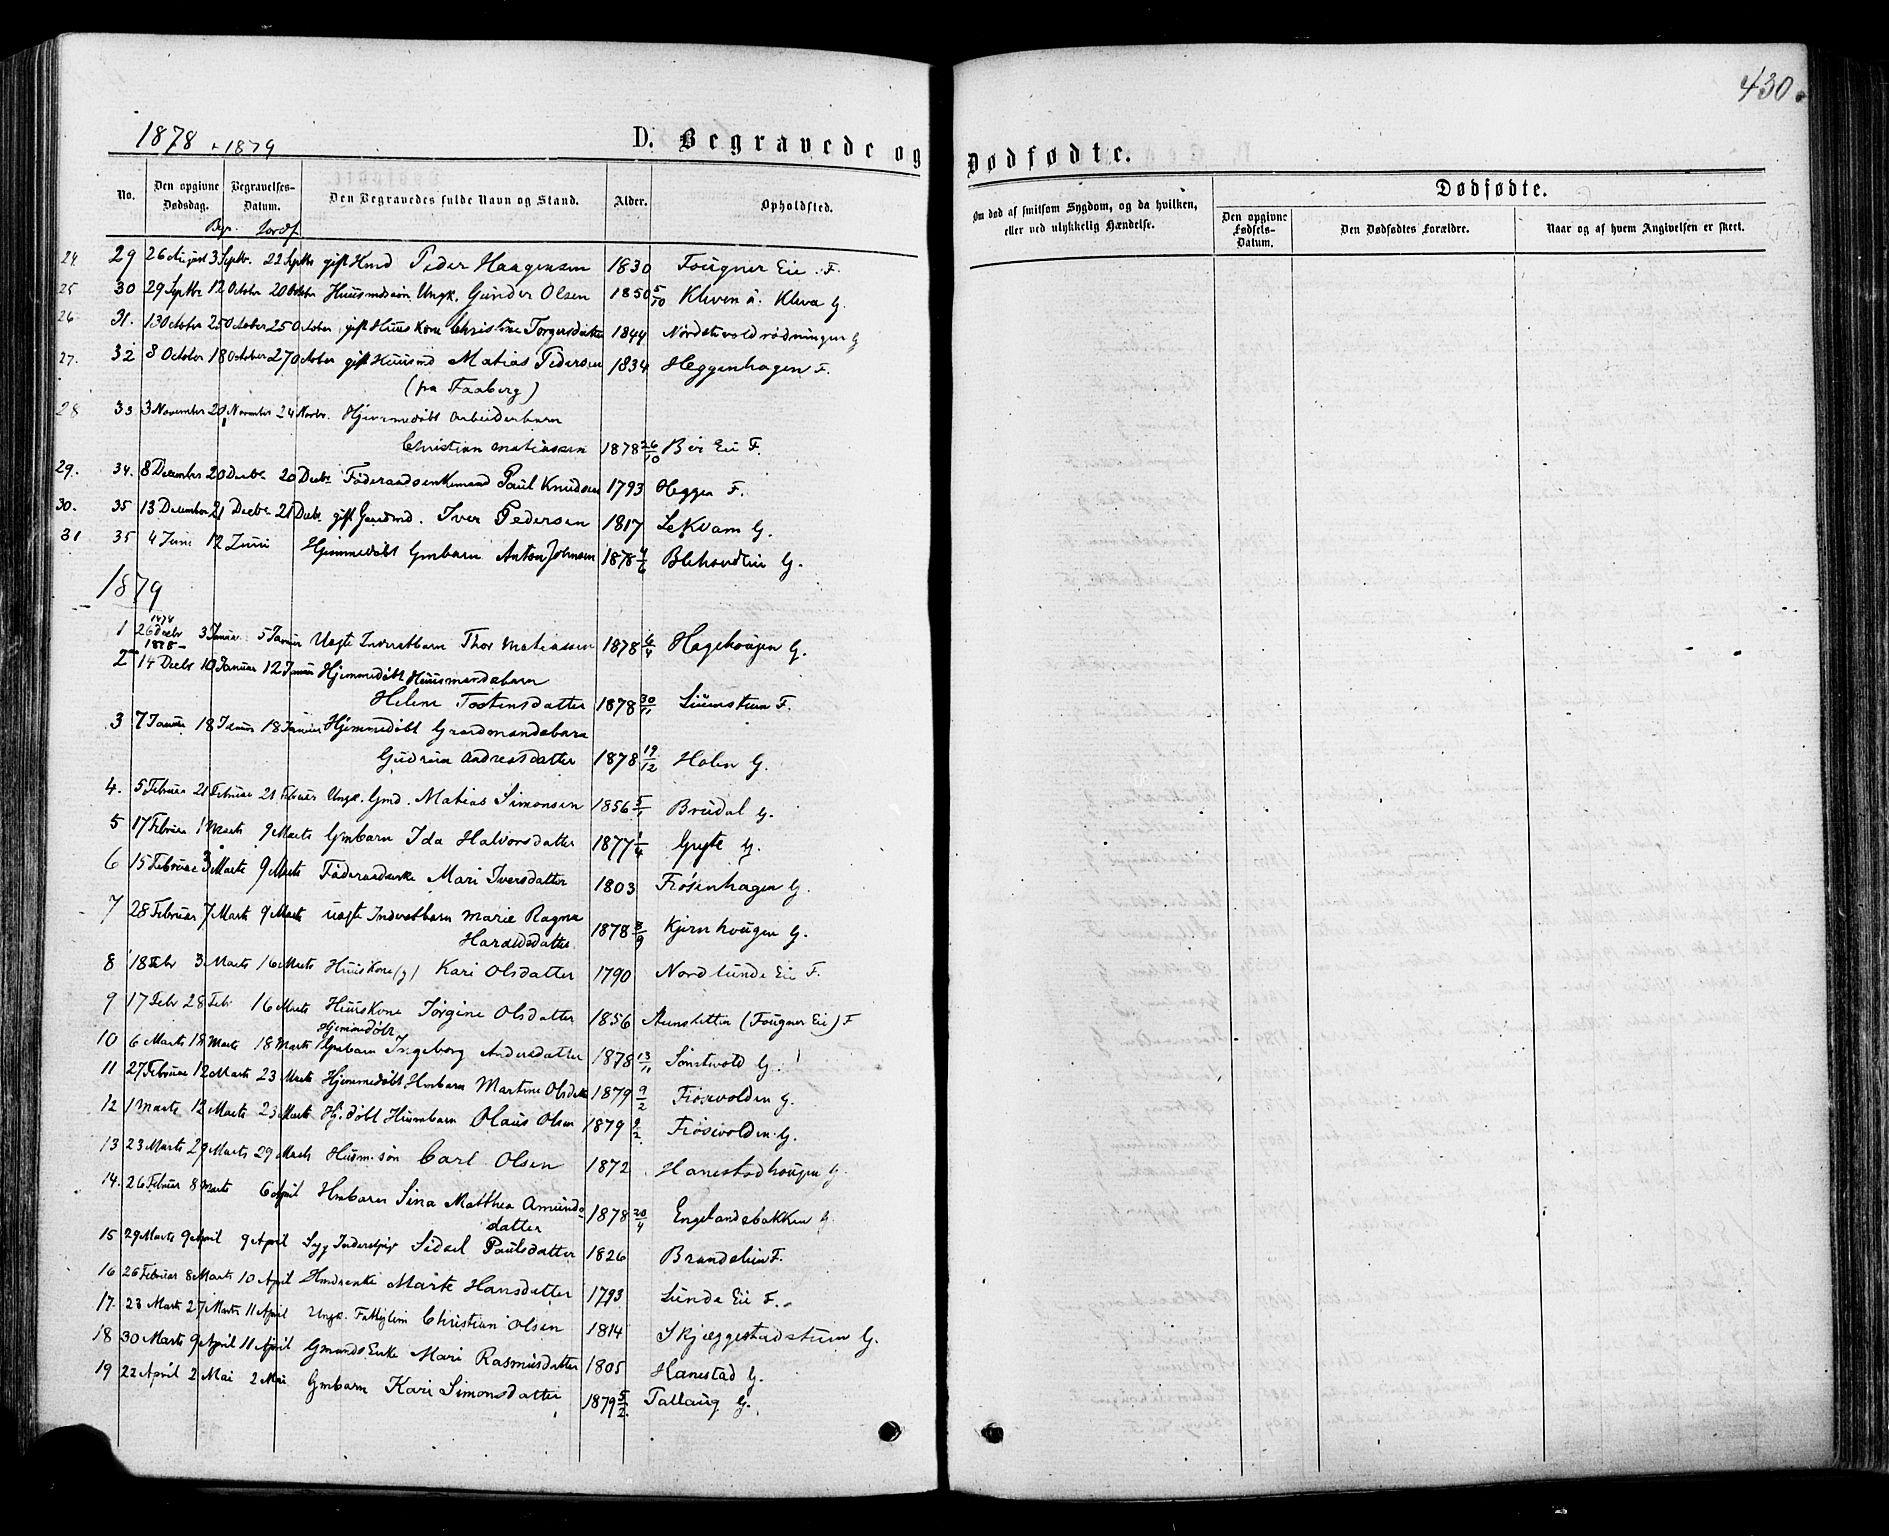 430.
1878 + 1879
D. Begravede og Dødfødte.
No. Den opgivne Dødsdag. Begravelses-Datum. Den Begravedes fulde Navn og Stand. Alder. Opholdsted. Om død af smitsom Sygdom, og da hvilken, eller ved ulykkelig Hændelse.
Dødfødte.
Den opgivne Fødsels-Datum. Den Dødfødtes Forældre. Naar og af hvem Angivelsen er skeet.
24 29 26 August 3 Septbr. 22 Septbr gift Hmd Peder Haagensen 1830 Fougner Eie F.
25 30 29 Septbr 12 October 20 October Huusmdssøn Ungk. Gunder Olsen 1850 5/10 Kleven u. Kleva G.
26 31. 13 October 25 October 25 October gift Huuskone Christine Torgersdatter 1844 Nordstvoldrødningen G
27. 32 8 October 18 October 27 October gift Huusmd Matias Pedersen 1834 Heggenhagen F.
(fra Faaberg)
28 33 3 November 20 November 24 Novbr. Hjemmedøbt Arbeiderbarn
Christian Matiassen 1878 26/10 Bøe Eie F.
29. 34. 8 December 20 Decbr 20 Decbr Føderaadsenkemand Paul Knudsen 1793 Heggen F.
30. 35 13 December 21 Decbr 21 Decbr. gift Gaardmd. Iver Pedersen 1817 LeKvam G.
31 35 4 Juni 12 Juni Hjemmedøbt Gmbarn Anton Johnsen 1878 4/6 Blihovdlien G.
1879
1 26 Decbr 1878 3 Januar 5 Januar Uægte Inderstbarn Thor Matiassen 1878 6/4 Hagehougen G.
2 1878 14 Decbr 10 Januar 12 Januar Hjemmedøbt Huusmandsbarn
Helene Tostensdatter 1878 30/11 Liumstuen F.
3 7 Januar 18 Januar 18 Januar Hjemmedøbt Gaardmandsbarn
Gudrun Andreasdatter 1878 19/12 Holen G.
4. 5 Februar 21 Februar 21 Februar Ungk. Gmd. Matias Simonsen 1856 5/1 Brudal G.
5 17 Februar 1 Marts 9 Marts Gmbarn Ida Halvorsdatter 1877 1/4 Gryte G.
6 15 Februar 3 Marts 9 Marts Føderaadsenke Mari Iversdatter 1803 Frøsenhagen G.
7 28 Februar 7 Marts 9 Marts uægte Inderstbarn Marie Ragna
Haraldsdatter 1878 3/9 Kjernhougen G.
8 18 Febr 3 Marts 16 Marts Huuskone (g) Kari Olsdatter 1790 Nordlunde Eie F.
9 17 Febr 28 Febr 16 Marts Huuskone Jørgine Olsdatter 1856 (Fougner Eie) F
Hjemmedøbt
10 6 Marts 18 Marts 18 Marts Gmbarn Ingeborg Andersdatter 1878 13/11 Sønstvold G.
11 27 Februar 12 Marts 23 Marts Hjemmedøbt Hmbarn Martine Olsdatter 1879 9/2 Frøsevolden G.
12 1 Marts 12 Marts 23 Marts Hj.døbt Husmbarn Olaus Olsen 1879 9/2. Frøsevolden G.
13 23 Marts 29 Marts 29 Marts Husm.søn Carl Olsen 1872 Hanestadhougen G.
14. 26 Februar 8 Marts 6 April Hmbarn Sina Matthea Amunds-
datter 1878 20/4 Engelandsbakken G
15 29 Marts 9 April 9 April Syg Inderstpige Sidsel Paulsdatter 1826 Brandslien F.
16 26 Februar 8 Marts 10 April Hmdsenke Marte Hansdatter 1793 Lunde Eie F.
17. 23 Marts 27 Marts 11 April Ungk. Fattiglem Christian Olsen 1814 Skjæggestadstuen G.
18 30 Marts 9 April 11 April Gmands Enke Mari Rasmusdatter 1805 Hanestad G.
19 22 April 2 Mai 2 Mai Gmbarn Kari Simonsdatter 1879 5/2. Tallaug G.